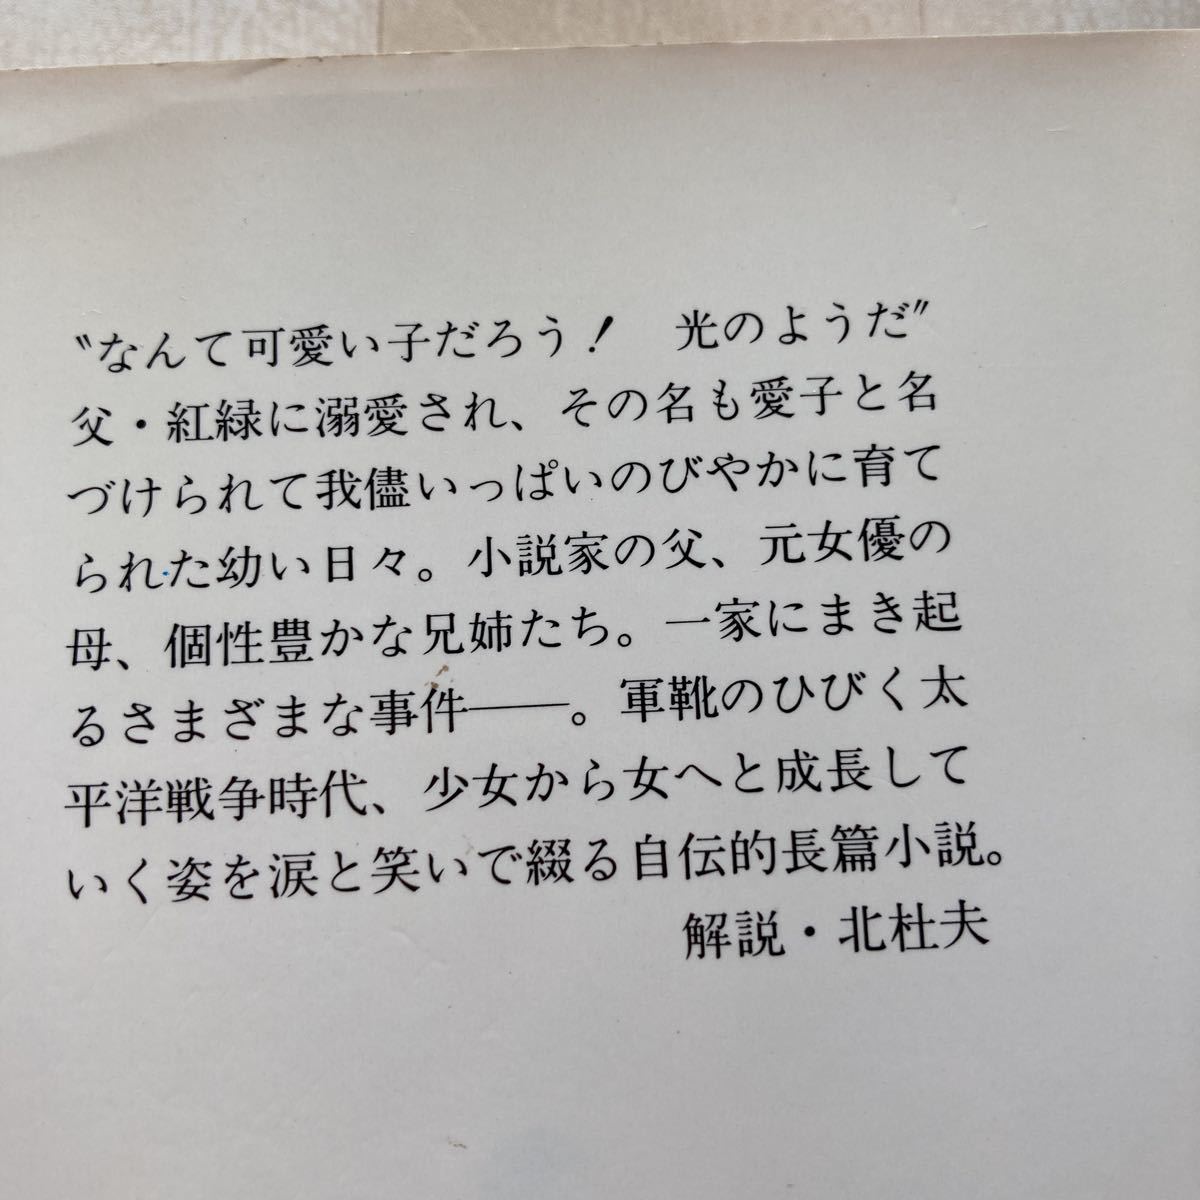 〝なんて可愛い子だろう！　光のようだ〟
父・紅緑に溺愛され、その名も愛子と名
づけられて我儘いっぱいのびやかに育て
られた幼い日々。小説家の父、元女優の
母、個性豊かな兄姉たち。一家にまき起
るさまざまな事件――。軍靴のひびく太
平洋戦争時代、少女から女へと成長して
いく姿を涙と笑いで綴る自伝的長篇小説。
解説・北杜夫